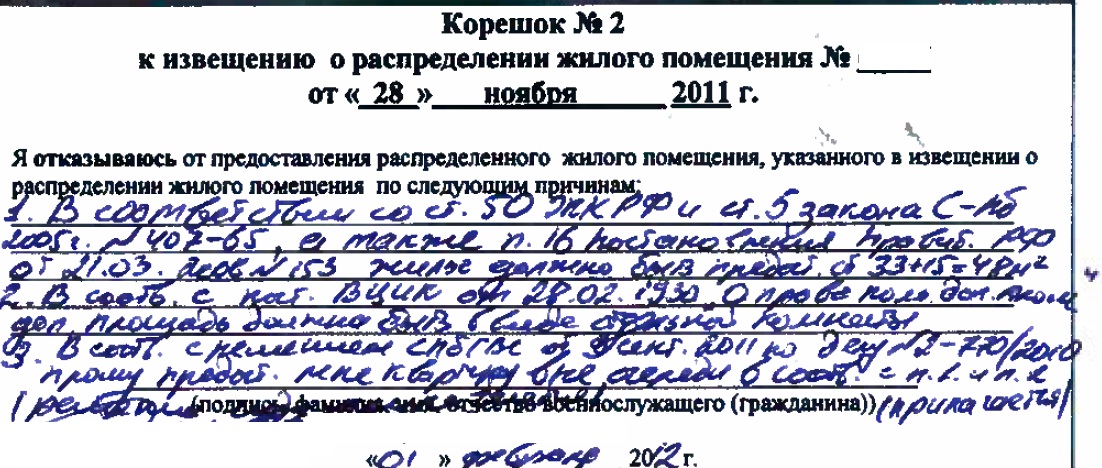 Корешок № 2
к извещению о распределении жилого помещения №
от « 28 » ноября 2011 г.
Я отказываюсь от предоставления распределенного жилого помещения, указанного в извещении о
распределении жилого помещения по следующим причинам:
1. В соответствии со ст. 50 ЖК РФ и ст. 5 закона С-Пб
2005 г. № 407-65, а также п. 16 постановления правит. РФ
от 21.03. № 153 жилье должно быть предост. 33+15=48 м²
2. В соотв. с пост. ВЦИК от 28.02.1930 О праве польз. доп.
площадь должна быть в виде комнаты
3. В соотв. с решением СПб ГВС от 9 сент. 2011 по делу №2-770/2010
прошу предост. мне квартиру вне очереди в соотв. с п.1. и п.2
(подпись, фамилия, имя, отчество военнослужащего (гражданина)) (прилагается)
«01» февраля 2012 г.